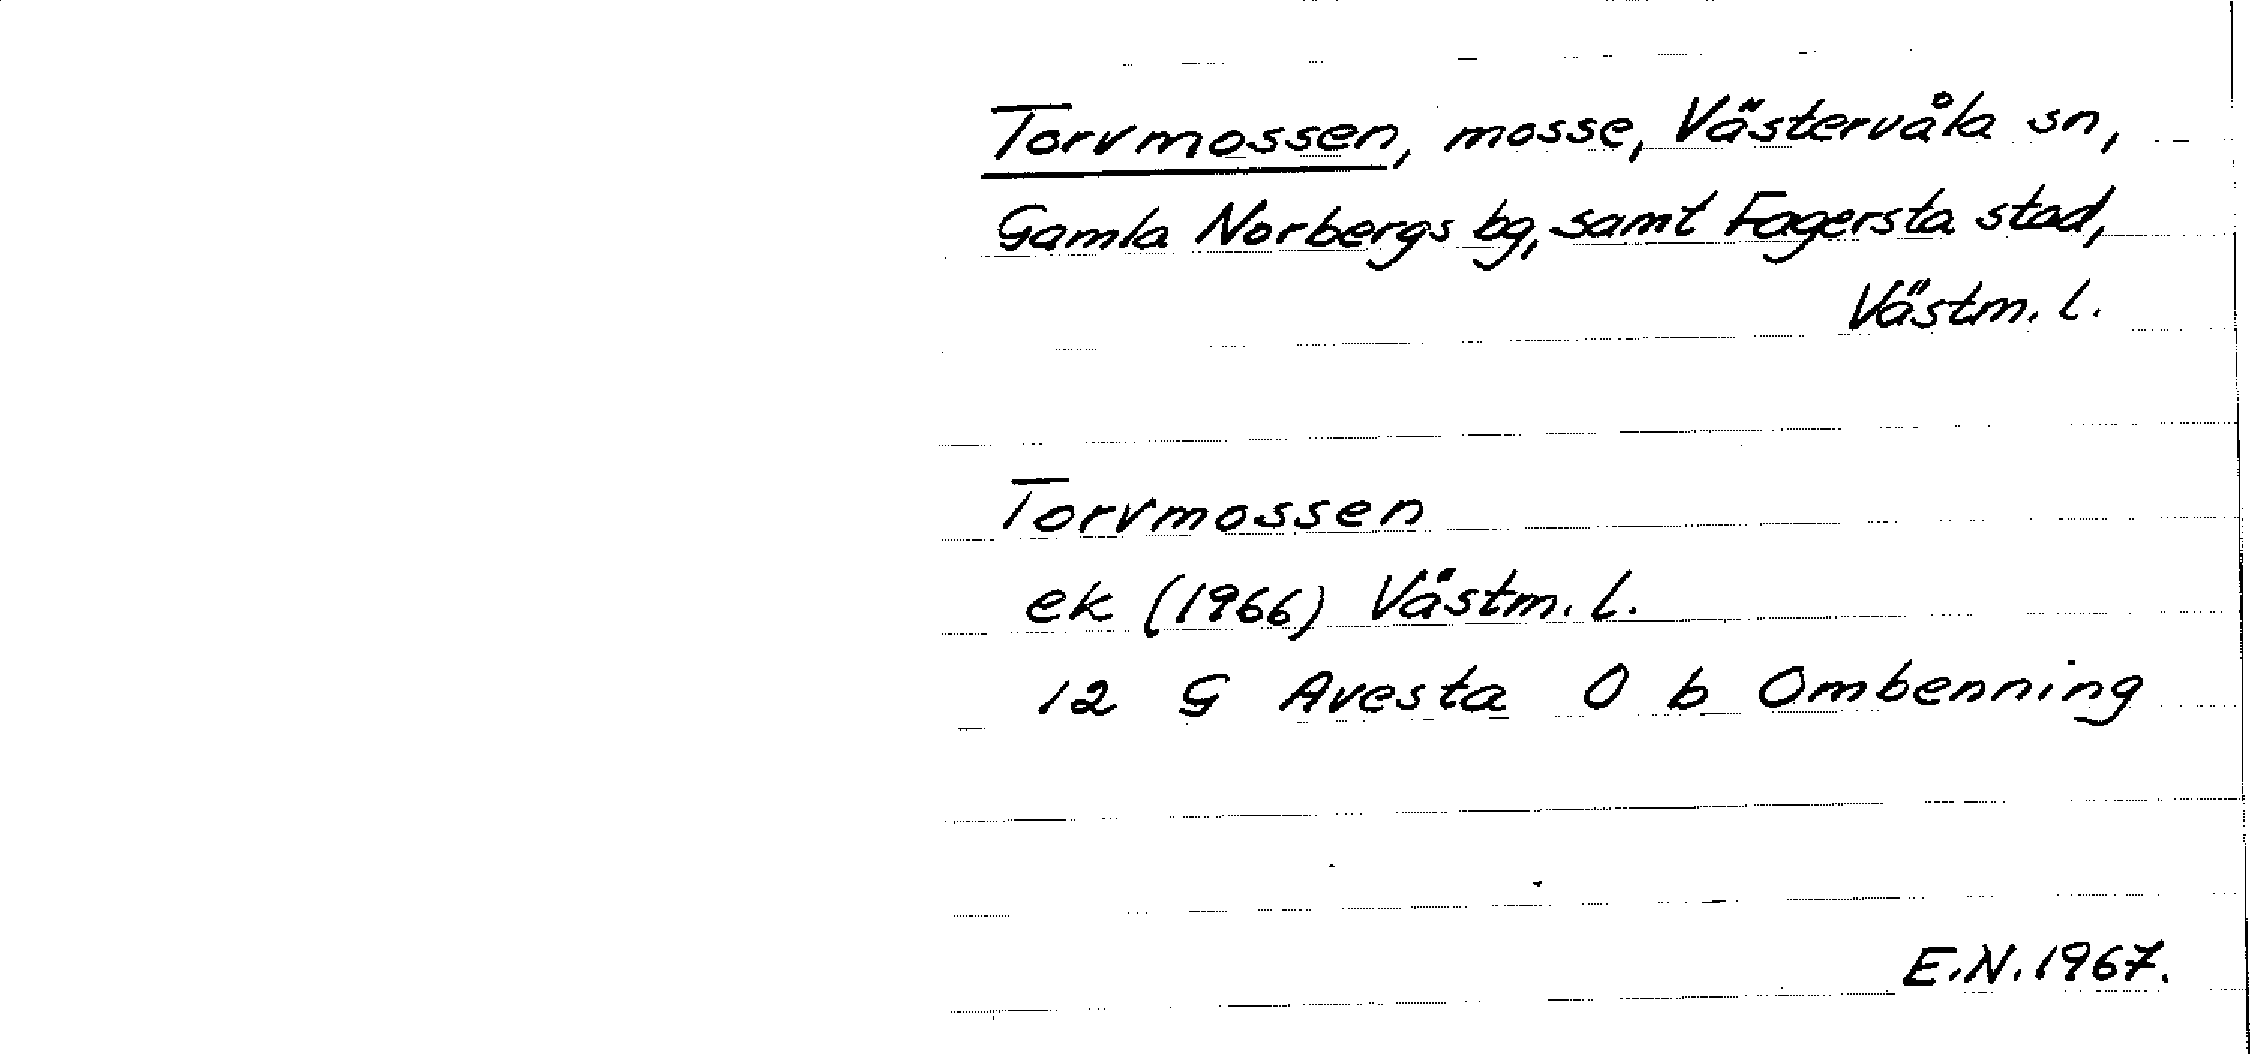 Torvmossen, mosse, Västervåla sn,
Gamla Norbergs bg, samt Fagersta stad,
Västm. l.
Torvmossen
ek (1966) Västm. l.
12 G Avesta O b Ombenning
E.N. 1967.